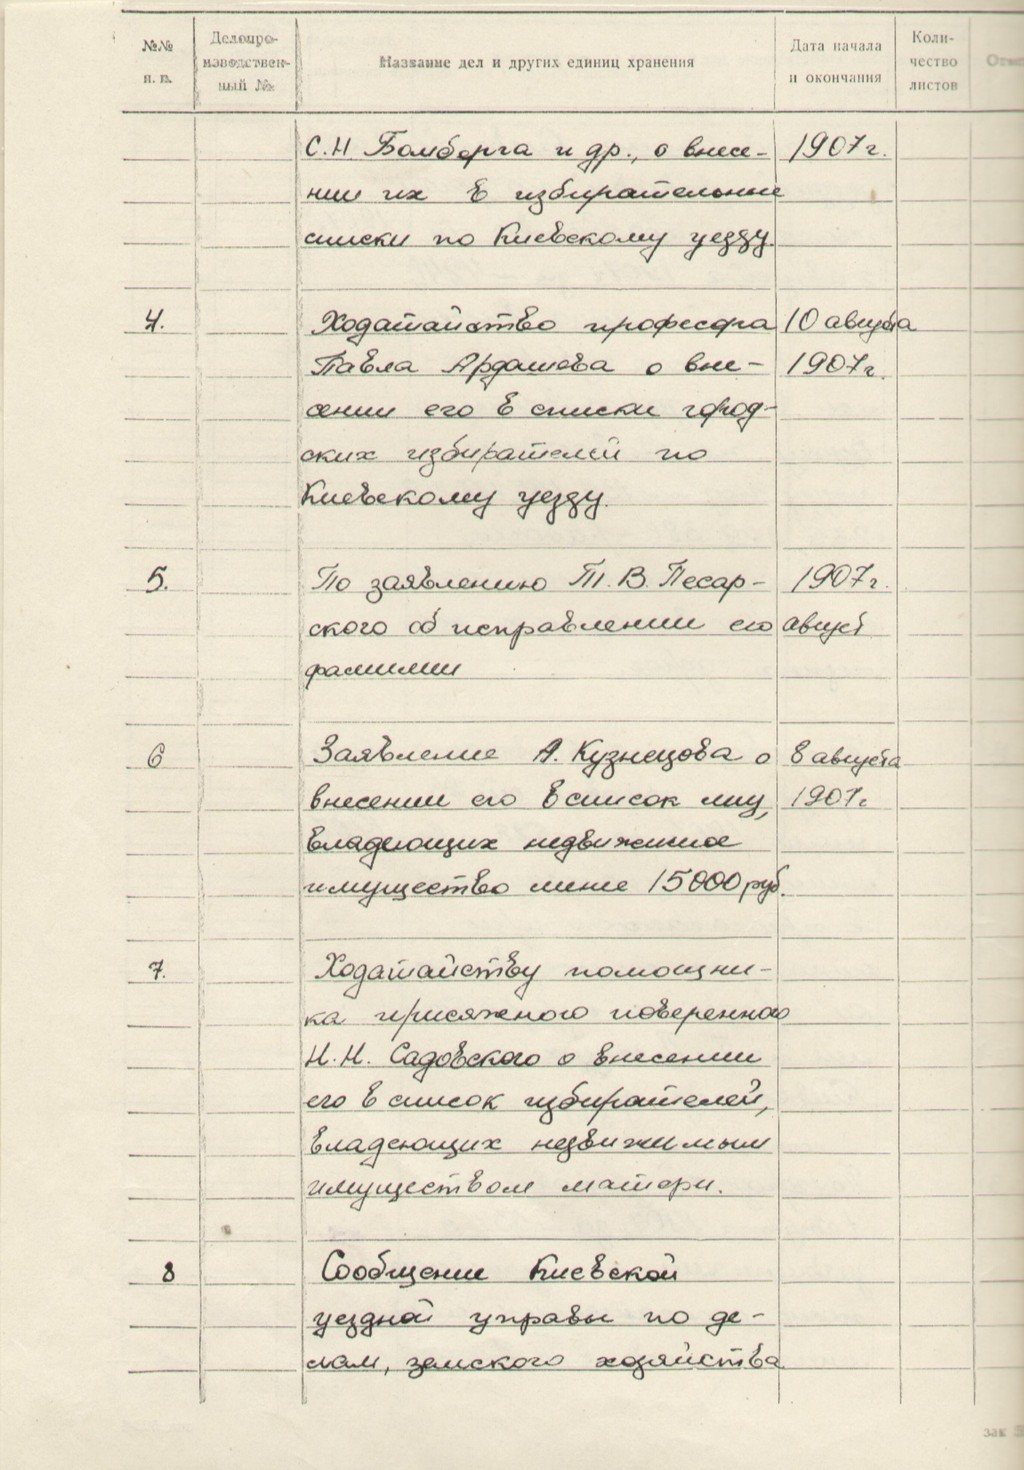 №№ п. п.
Делопро-
изводствен-
ный №
Название дел и других единиц хранения
Дата начала
и окончания
Коли-
чество
листов
С.Н. Бомберга и др., о внесе- 1907 г.
нии их в избирательные
списки по Киевскому уезду.
4. Ходатайство професора 10 августа
Павла Ардашева о вне- 1907 г.
сении его в списки город-
ских избирателей по
Киевскому уезду.
5. По заявлению Т. В. Песар- 1907 г.
ского об исправлении его август
фамилии
6 Заявление А. Кузнецова о 8 августа
внесении его в список лиц, 1907 г
владеющих недвижимое
имущество мение 15000 руб.
7. Ходатайству помощни-
ка присяжного поверенного
Н.Н. Садовского о внесении
его в список избирателей,
владеющих недвижимым
имуществом матери.
8 Сообщение Киевской
уездной управы по де-
лам, земского хозяйства
зак